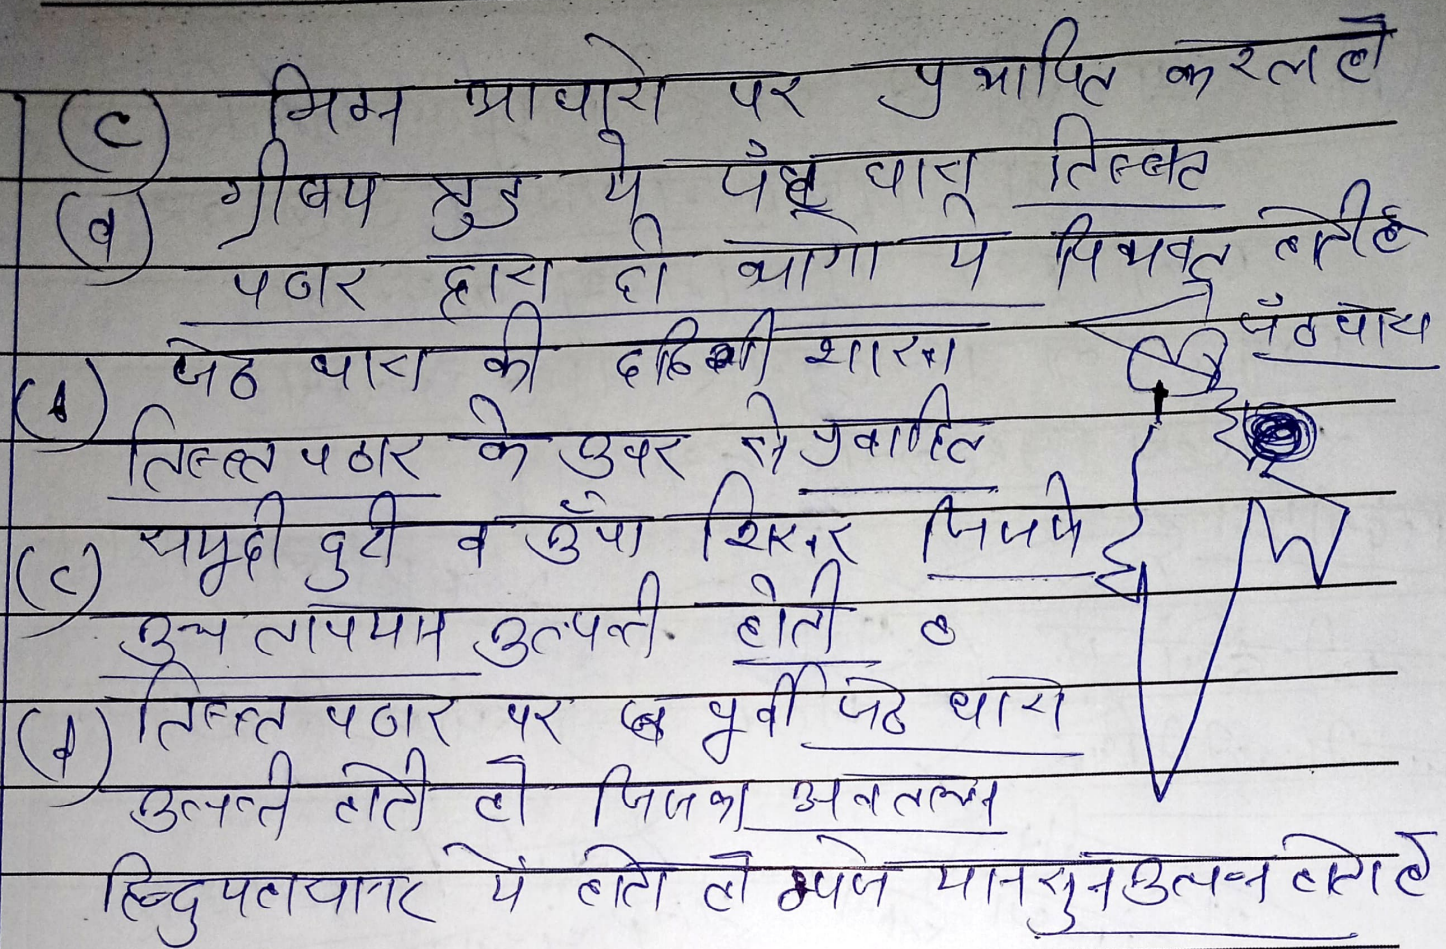 (c) निम्न आधारो पर प्रभावित करता है
(a) ग्रीष्म ऋतु मे जेट धारा तिब्बत
पठार द्वारा दो भागो मे विभक्त होती है
जेठ धारा
(b) जेठ धारा की दक्षिणी शाखा
तिब्बत पठार के उपर से प्रवाहित
(c) समुद्री दुरी व ऊँचा शिखर जिसमे
उच्च तापमान उत्पन्ती होती है
(d) तिब्बत पठार पर पूर्वी जेठ धारा
उत्पन्ती होती है जिसका अवतलन
हिन्दमहासागर मे होता है मानसुन उत्पन्न होता है